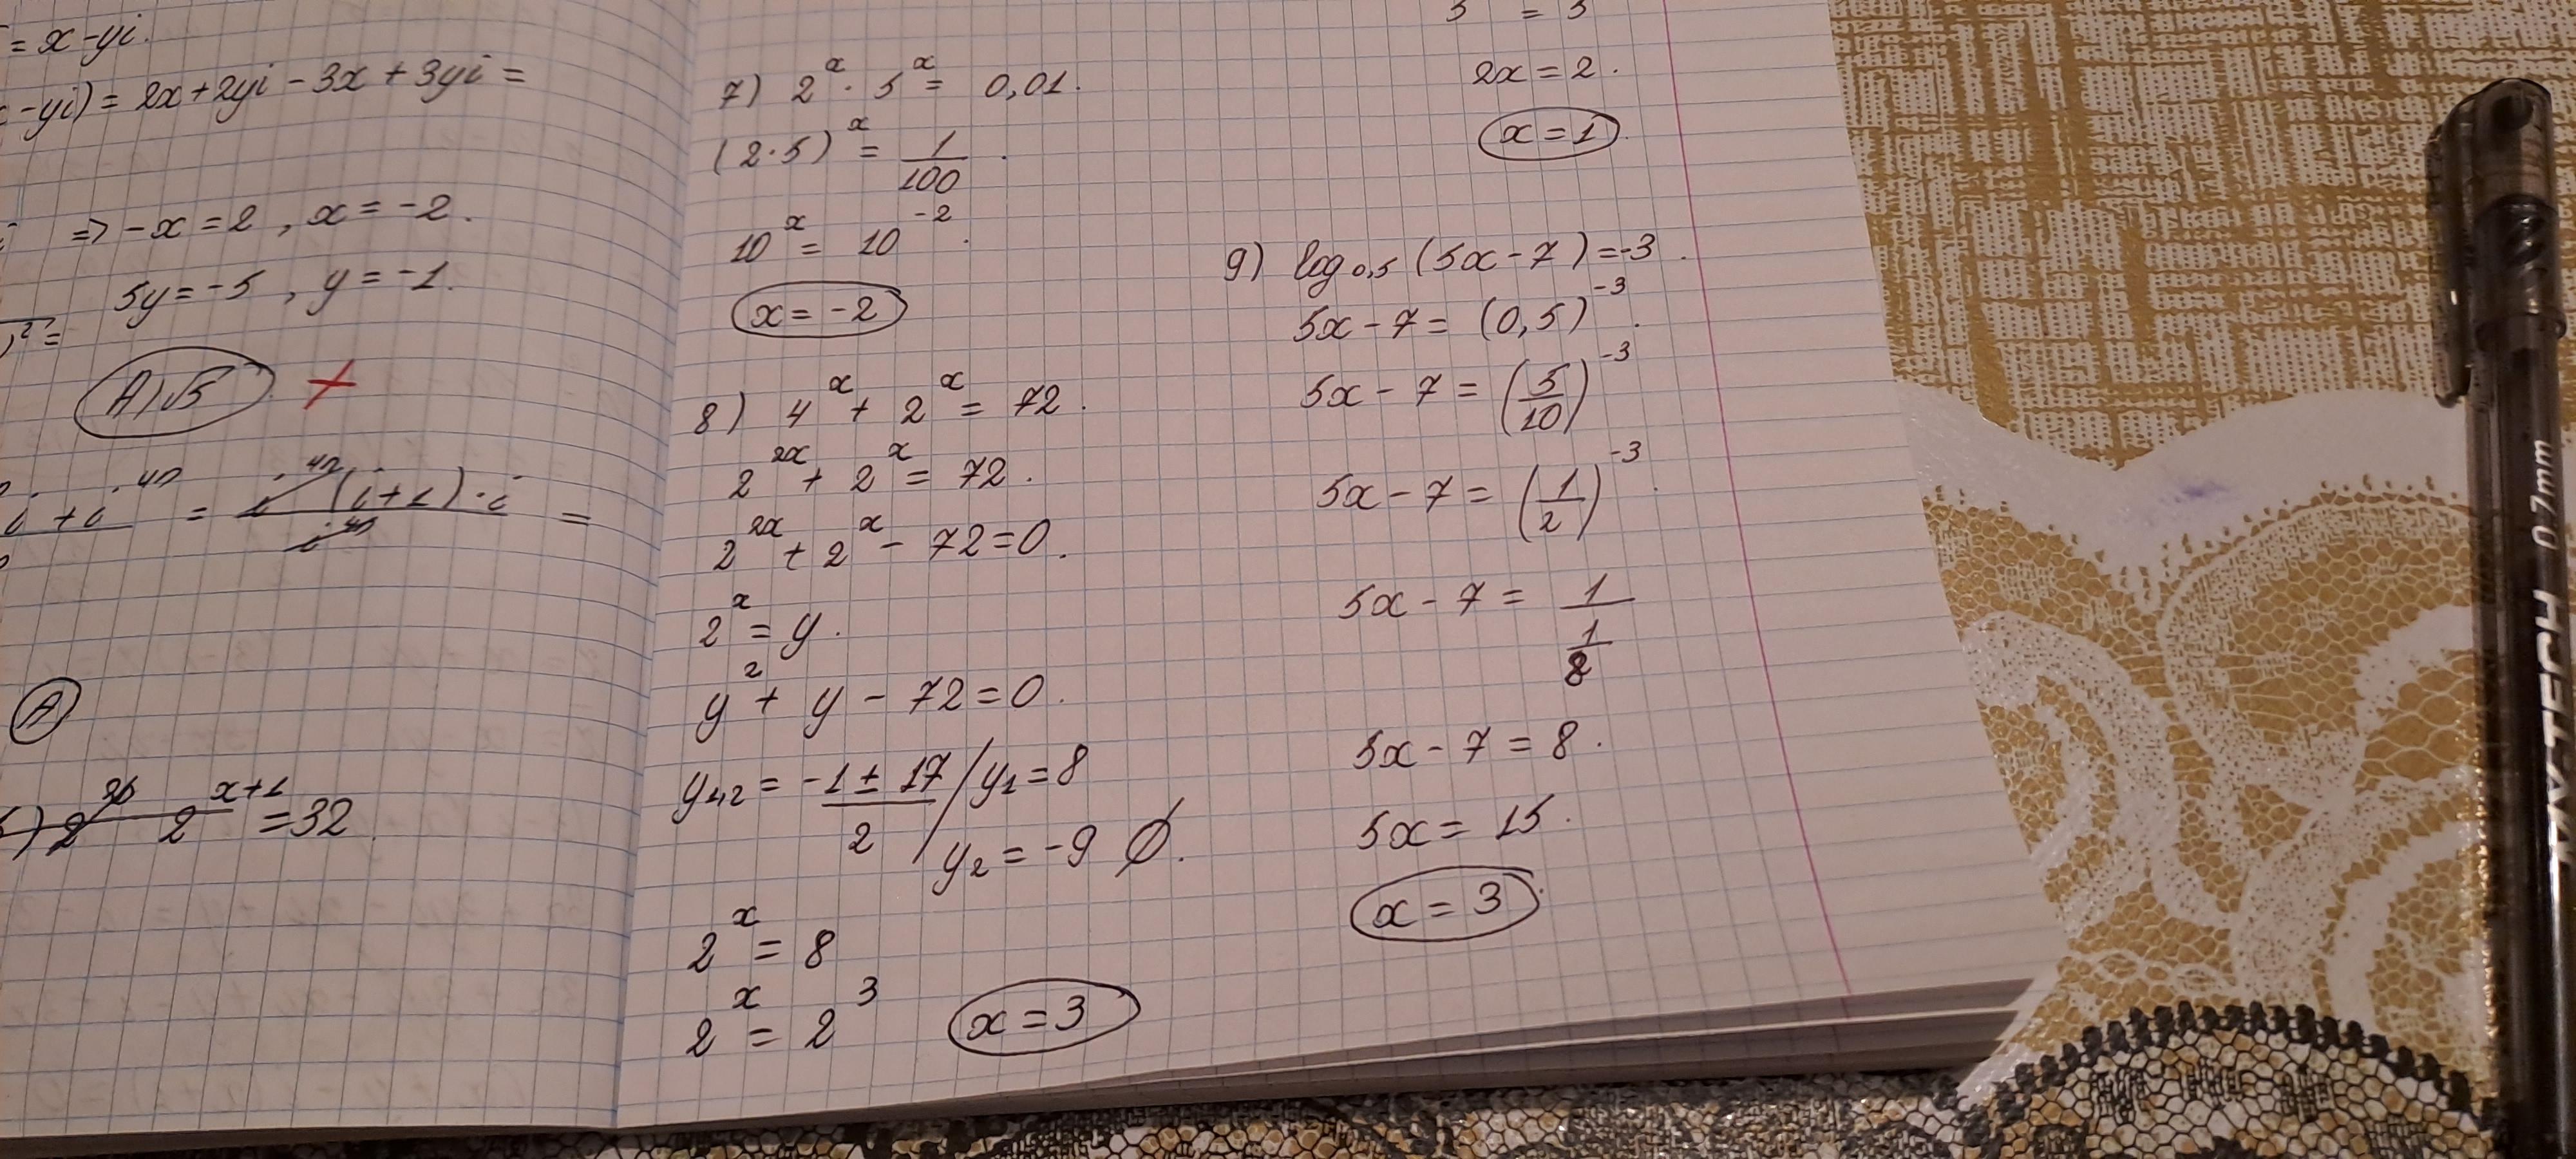 = x - yi.
- yi) = 2x + 2yi - 3x + 3yi =
=> -x = 2 , x = -2.
5y = -5 , y = -1.
)² =
A) √5
i + i⁴ⁿ = i⁴ⁿ (i + 1) · i / i⁴ⁿ =
A
) 2 2ˣ⁺¹ = 32.
7) 2ˣ · 5ˣ = 0,01.
(2 · 5)ˣ = 1/100.
10ˣ = 10⁻².
x = -2
8) 4ˣ + 2ˣ = 72.
2²ˣ + 2ˣ = 72.
2²ˣ + 2ˣ - 72 = 0.
2ˣ = y.
y² + y - 72 = 0.
y₁,₂ = (-1 ± 17)/2 / y₁ = 8
y₂ = -9 ∅.
2ˣ = 8
2ˣ = 2³
x = 3
5 = 5
2x = 2.
x = 1.
9) log₀,₅ (5x - 7) = -3.
5x - 7 = (0,5)⁻³.
5x - 7 = (5/10)⁻³
5x - 7 = (1/2)⁻³.
5x - 7 = 1/(1/8)
5x - 7 = 8.
5x = 15.
x = 3.
MY-TECH 0.7mm